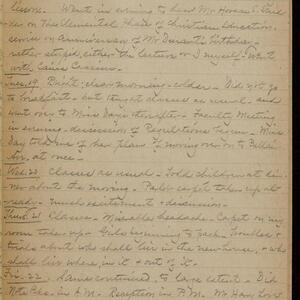 lessons. Went in evening to hear Mr. Horace E.
on "The Elemental Phases of Christian Education,"
service on anniversary of Mr. Durant's birthday -
rather stupid, either the lecture or I myself. Went
with Caroline
Tues. 19. Bright, clear morning - colder - Did not go
to breakfast - but taught classes as usual, and
went over to Miss Days thereafter - Faculty Meeting
in evening - discussion of Regulations begun - Miss
Day told me of her plans of moving over to
at once -
Wed. 20. Classes as usual - Told children at din-
ner about the moving. Parlor carpet taken up al-
ready - much excitement & discussion -
Thurs. 21. Classes - Miserable headache. Carpet on my
room taken up - Girls beginning to pack. Troubles &
trials about who shall live in the new house, & who
shall live where, in it & out of it -
Fri. 22. Same continued, to large extent - Did
in A.M. - Reception in P.M. Mr.